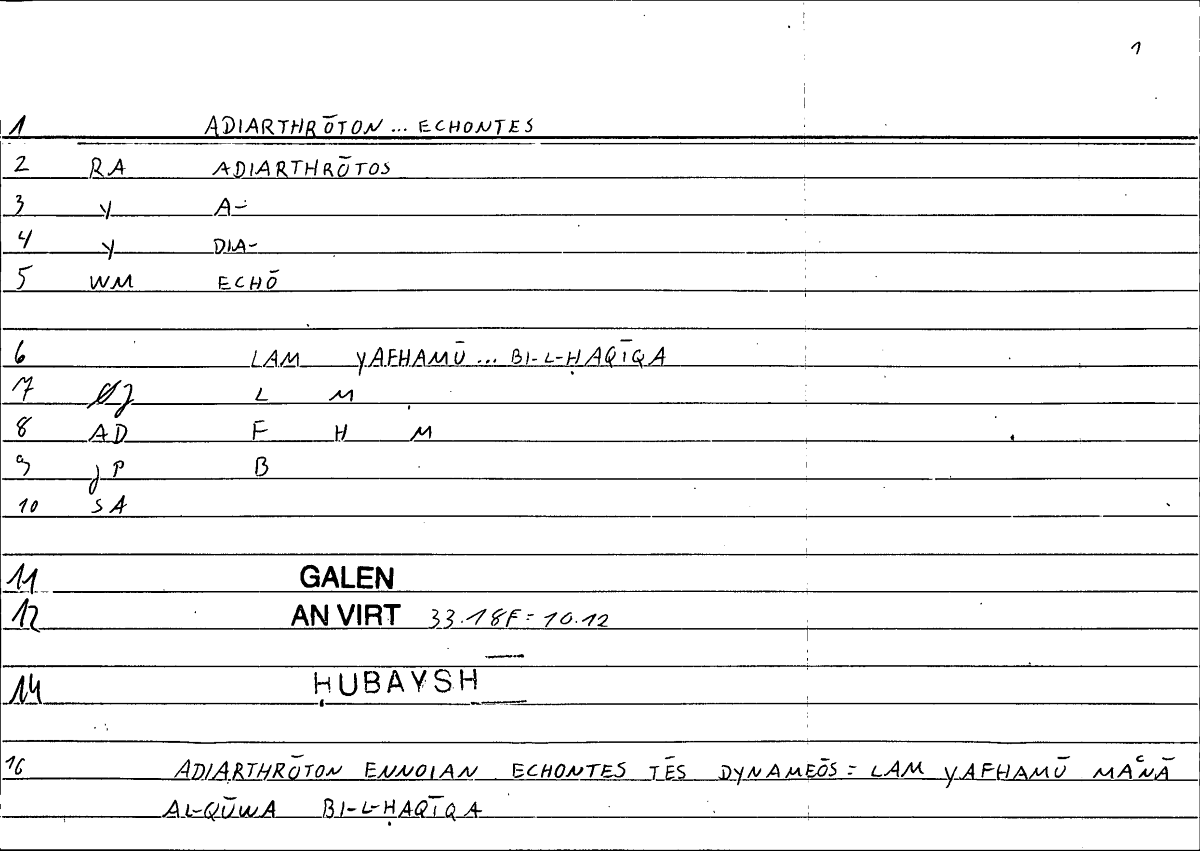 1
1 ADIARTHRŌTON ... ECHONTES
2 RA ADIARTHRŌTOS
3 Y A-
4 Y DIA-
5 WM ECHŌ
6 LAM YAFHAMŪ ... BI-L-ḤAQĪQA
7 L M
8 AD F H M
9 JP B
10 SA
11 GALEN
12 AN VIRT 33.18F = 10.12
14 ḤUBAYSH
16 ADIARTHRŌTON ENNOIAN ECHONTES TĒS DYNAMEŌS = LAM YAFHAMŪ MAʿNĀ
AL-QŪWA BI-L-ḤAQĪQA